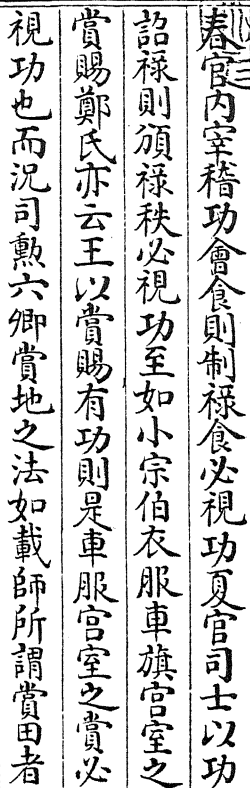 春官内宰稽功會食則制祿食必視功夏官司士以功
詔祿則頒祿秩必視功至如小宗伯衣服車旗宫室之
賞賜鄭氏亦云王以賞賜有功則是車服宫室之賞必
視功也而況司勲六卿賞地之法如載師所謂賞田者